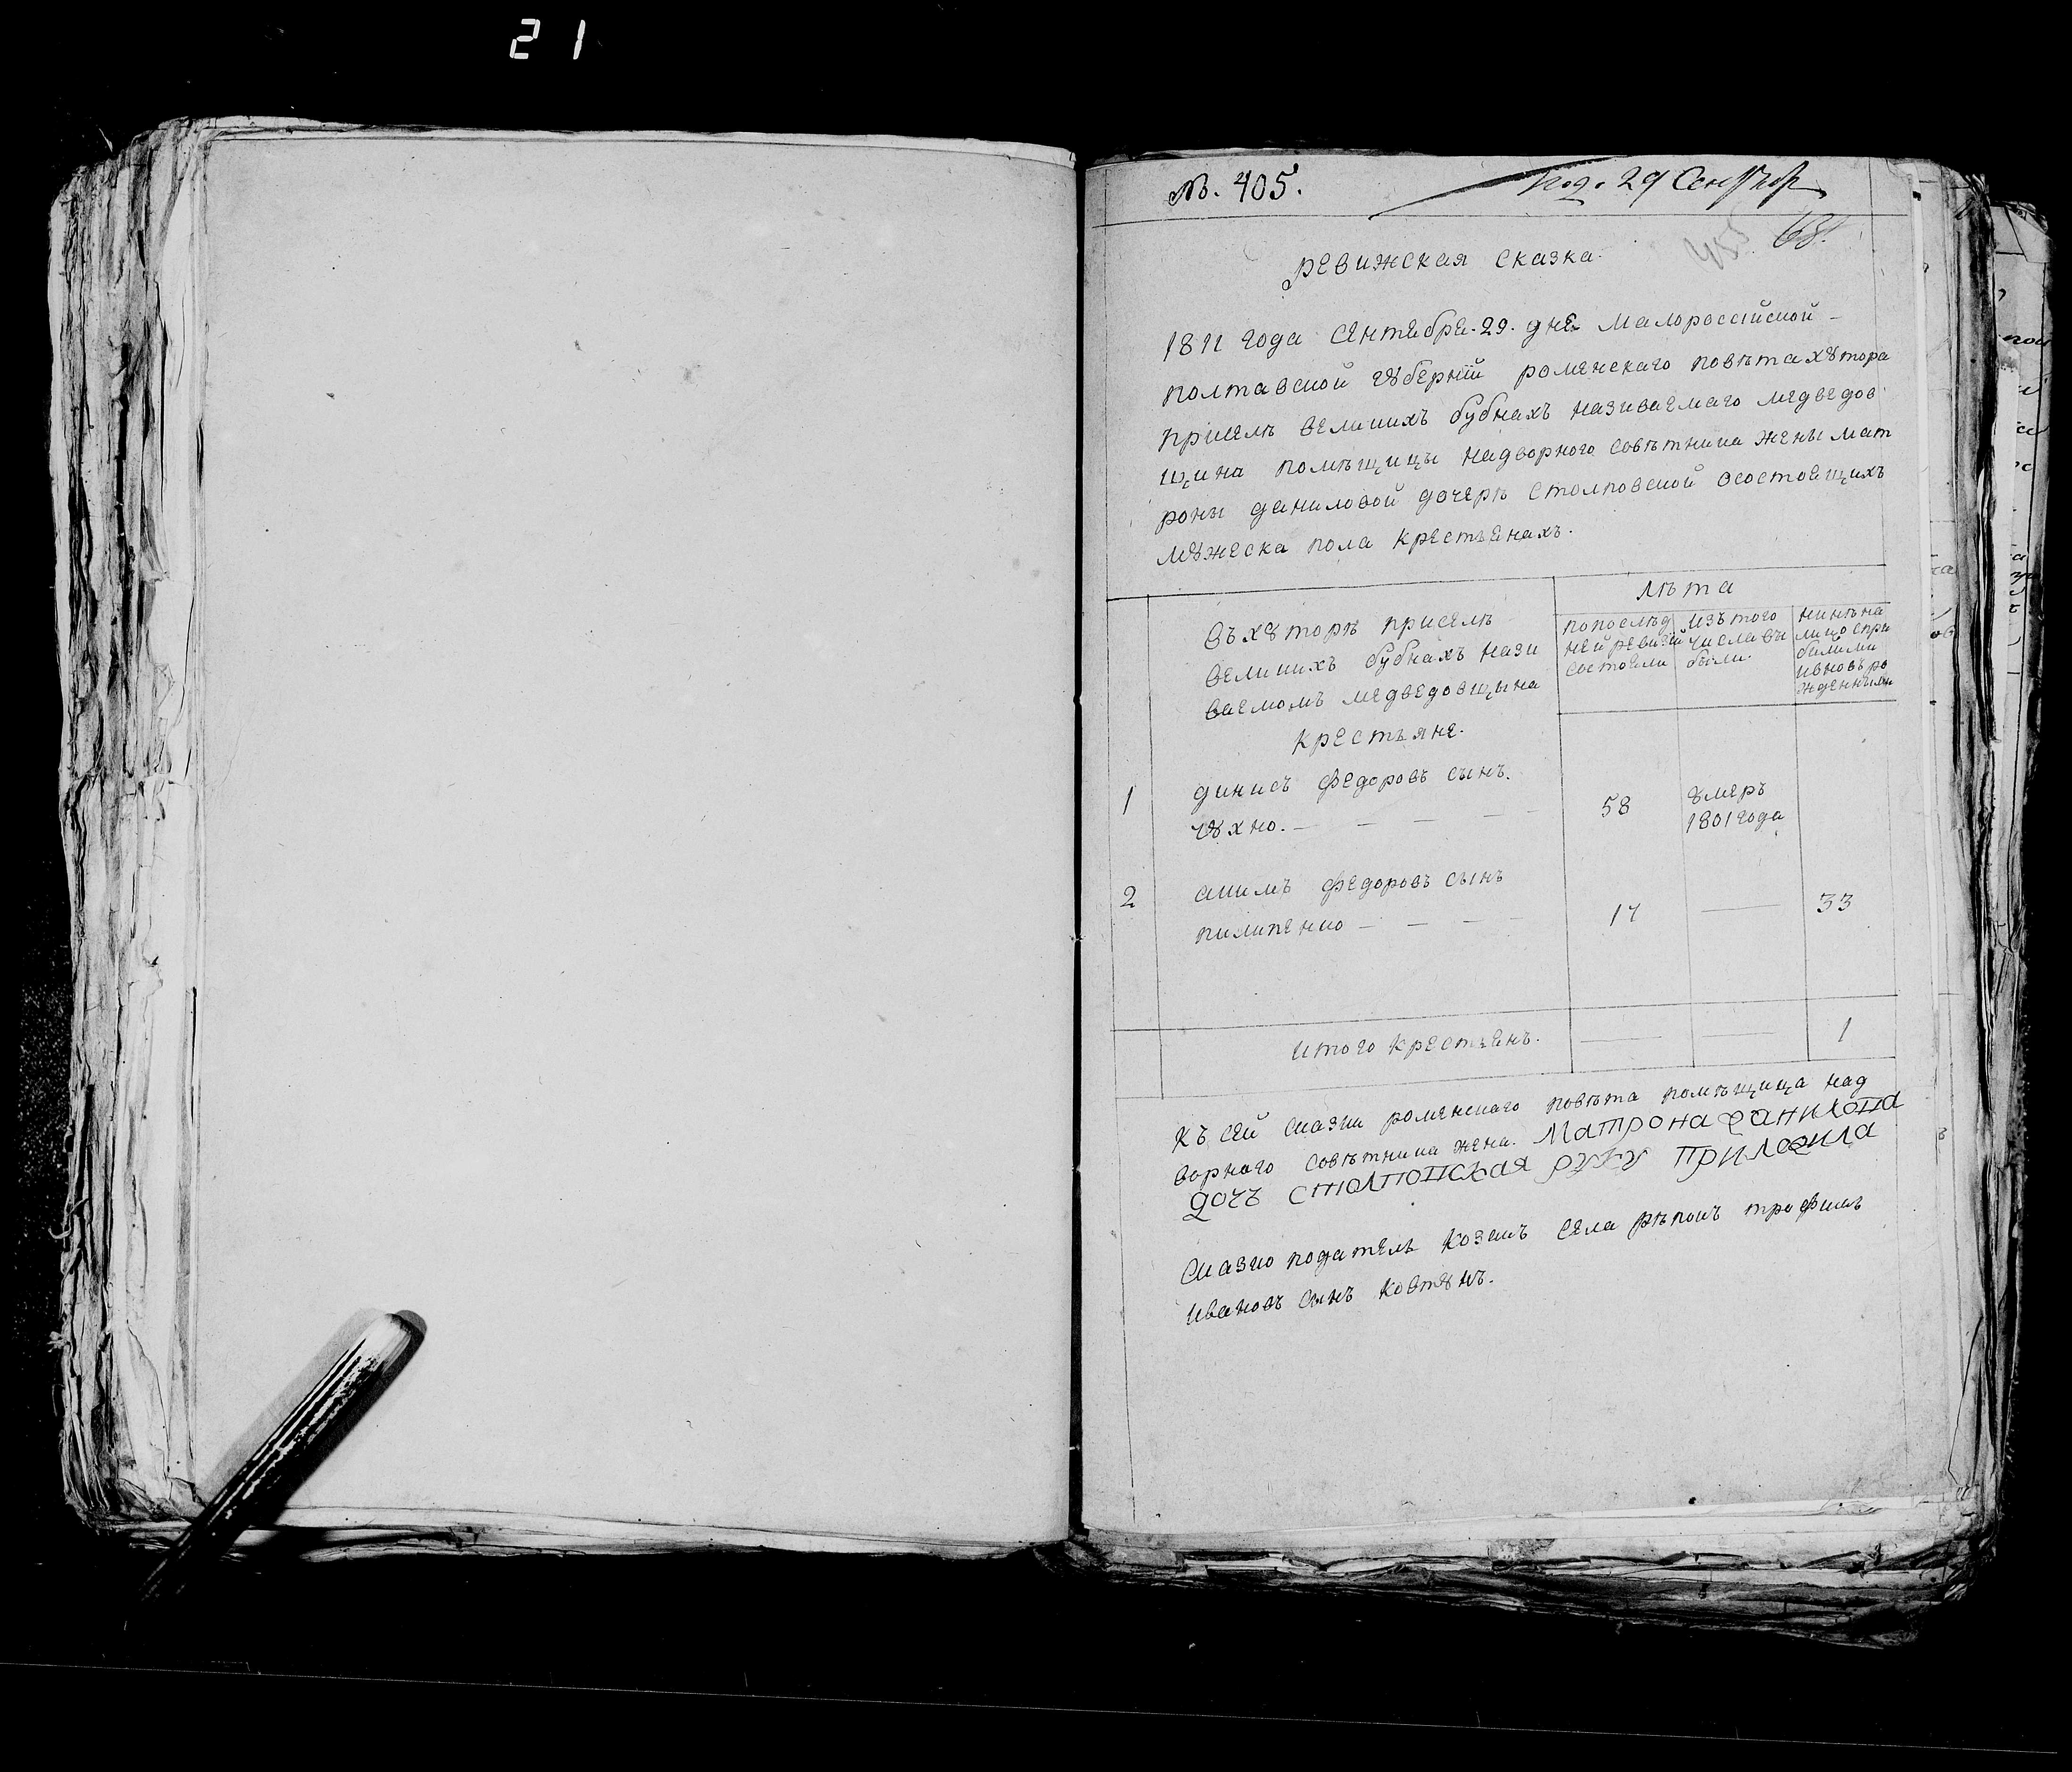 21
№. 405.
под. 29 Сентября
455 68.
ревижская сказка.
1811 года сентебре. 29. дне малороссійской
полтавской гꙋберніи роменскаго повѣта хꙋтора
приселѣ великихъ бубнахъ називаемаго медведов
щина помѣщицы надворного совѣтника жены мат
роны даниловой дочерѣ столповской осостоещихъ
мꙋжеска пола крестьенахъ.
лѣта
въ хꙋторѣ приселѣ
великихъ бубнахъ нази
ваемомъ медведовщына
крестьяне.
попослѣд
ней ревизіи
состоели
изъ того
числа вы
были.
нинѣ на
лицо спри
билими
ивновъ ро
жденними
1
динисъ федоровъ сынъ.
чꙋхно. — — — — —
58
ꙋмеръ
1801 года
2
акимъ федоровъ сынъ
пилипенко — — — —
17
—
33
итого крестьенъ.
—
—
1
къ сей сказки роменскаго повѣта помѣщица над
ворнаго совѣтника жена. Матрона данилова
дочъ столповская руку приложила
сказко податель козакъ села рѣпокъ трофимъ
ивановъ сынъ ковтꙋнъ.